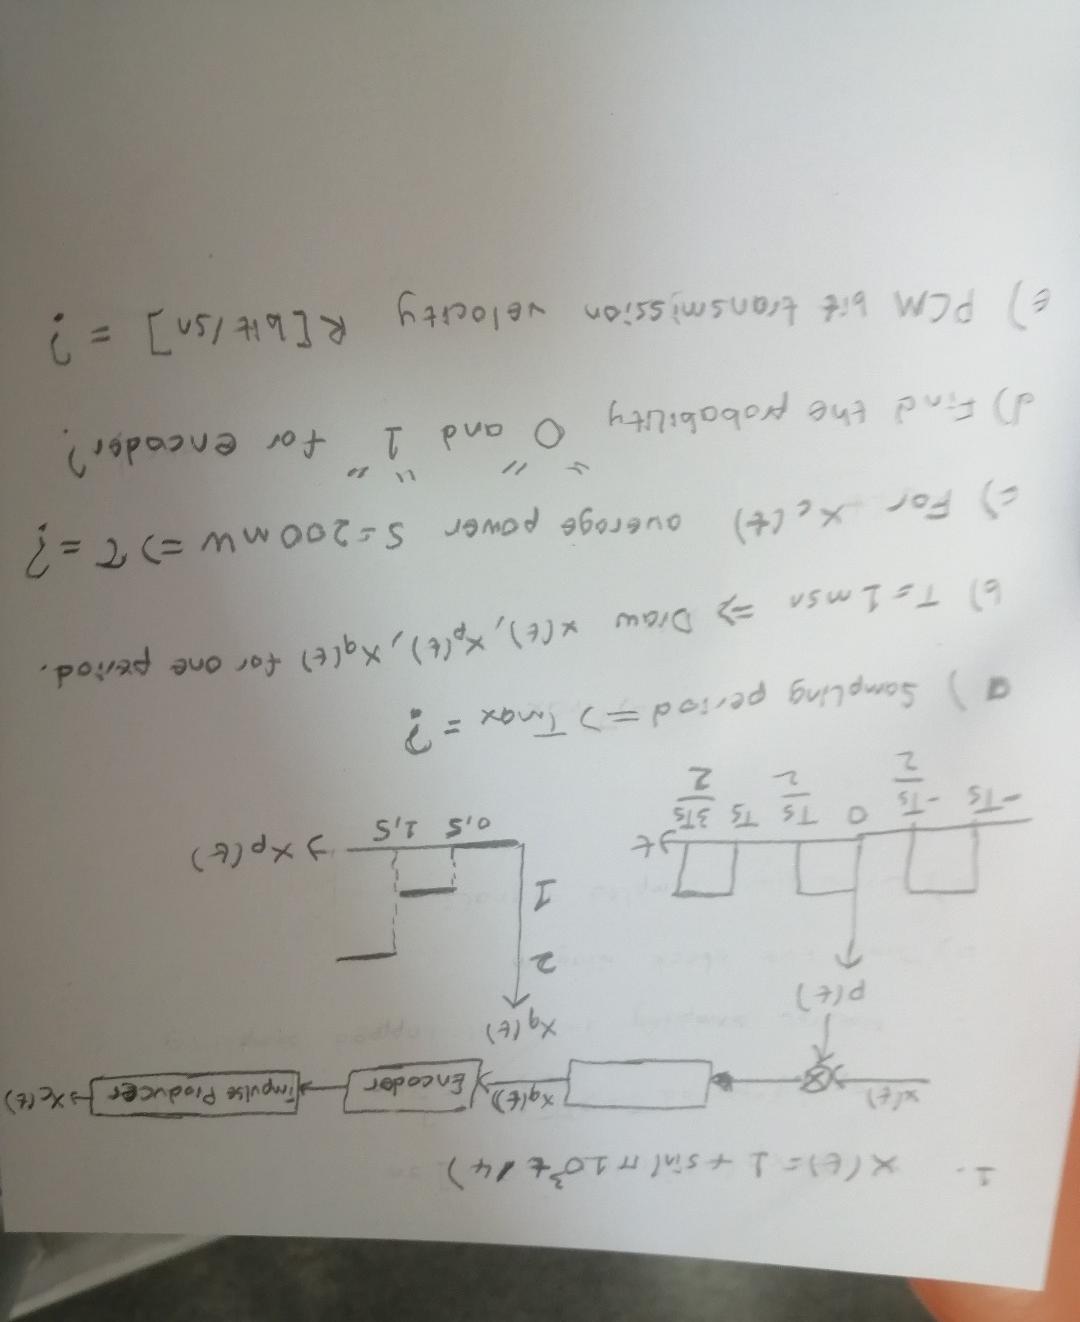 1. x(t) = 1 + sin(π 10³t / 4)
x(t) xq(t) Encoder impulse Producer xc(t)
p(t) xq(t)
2
1
t xp(t)
-Ts -Ts/2 0 Ts/2 Ts 3Ts/2 0,5 1,5
a) Sampling period => Tmax = ?
b) T = 1 msn => Draw x(t), xp(t), xq(t) for one period.
c) For xc(t) average power S = 200 mW => τ = ?
d) Find the probability "0" and "1" for encoder?
e) PCM bit transmission velocity R [bit/sn] = ?